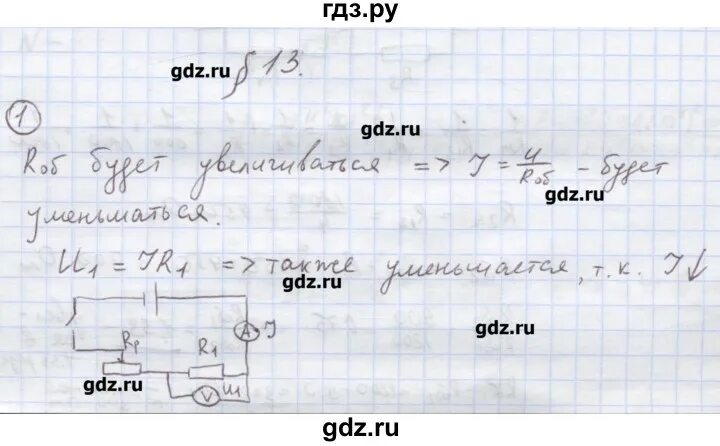 гдз.ру
§ 13.
gdz.ru
1
gdz.ru
Rоб будет увеличиваться => I = U/Rоб – будет
gdz.ru
уменьшаться.
U1 = IR1 => также уменьшается, т.к. I↓
gdz.ru
A I
Rр R1
gdz.ru
gdz.ru
V U1
gdz.ru